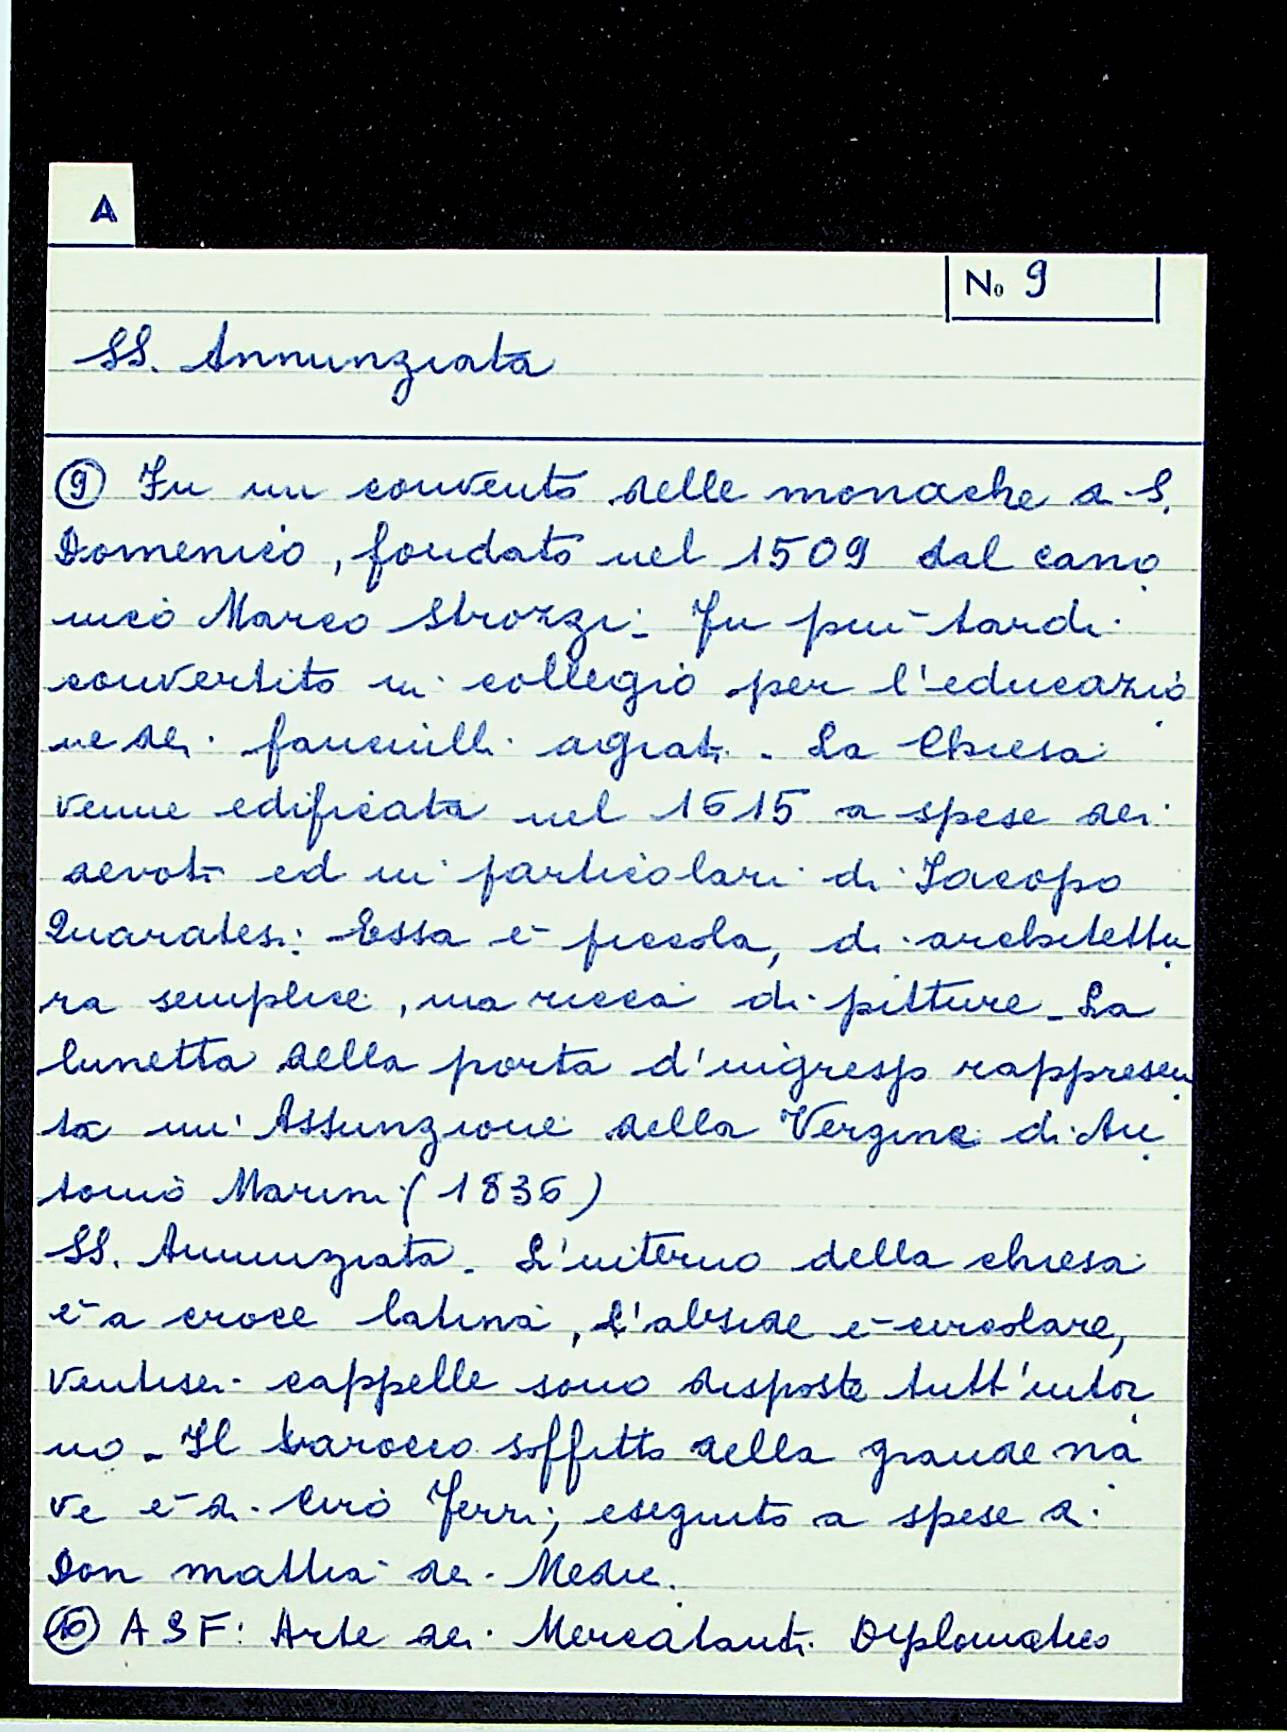 A
No 9
SS. Annunziata
9 Fu un convento delle monache di S.
Domenico, fondato nel 1509 dal cano
nico Marco Strozzi. Fu più tardi
convertito in collegio per l'educazio
ne dei fanciulli agiati. La Chiesa
venne edificata nel 1615 a spese dei
devoti ed in particolari di Iacopo
Quaratesi. Essa è piccola, di architettu
ra semplice, ma ricca di pitture. La
lunetta della porta d'ingresso rappresen
ta un'Assunzione della Vergine di An
tonio Marini (1836)
SS. Annunziata. L'interno della chiesa
è a croce latina, l'abside è circolare,
ventisei cappelle sono disposte tutt'intor
no. Il barocco soffitto della grande na
ve è di Ciro Ferri; eseguito a spese di
Don Mattia dei Medici.
10 ASF: Arte dei Mercatanti Diplomatico